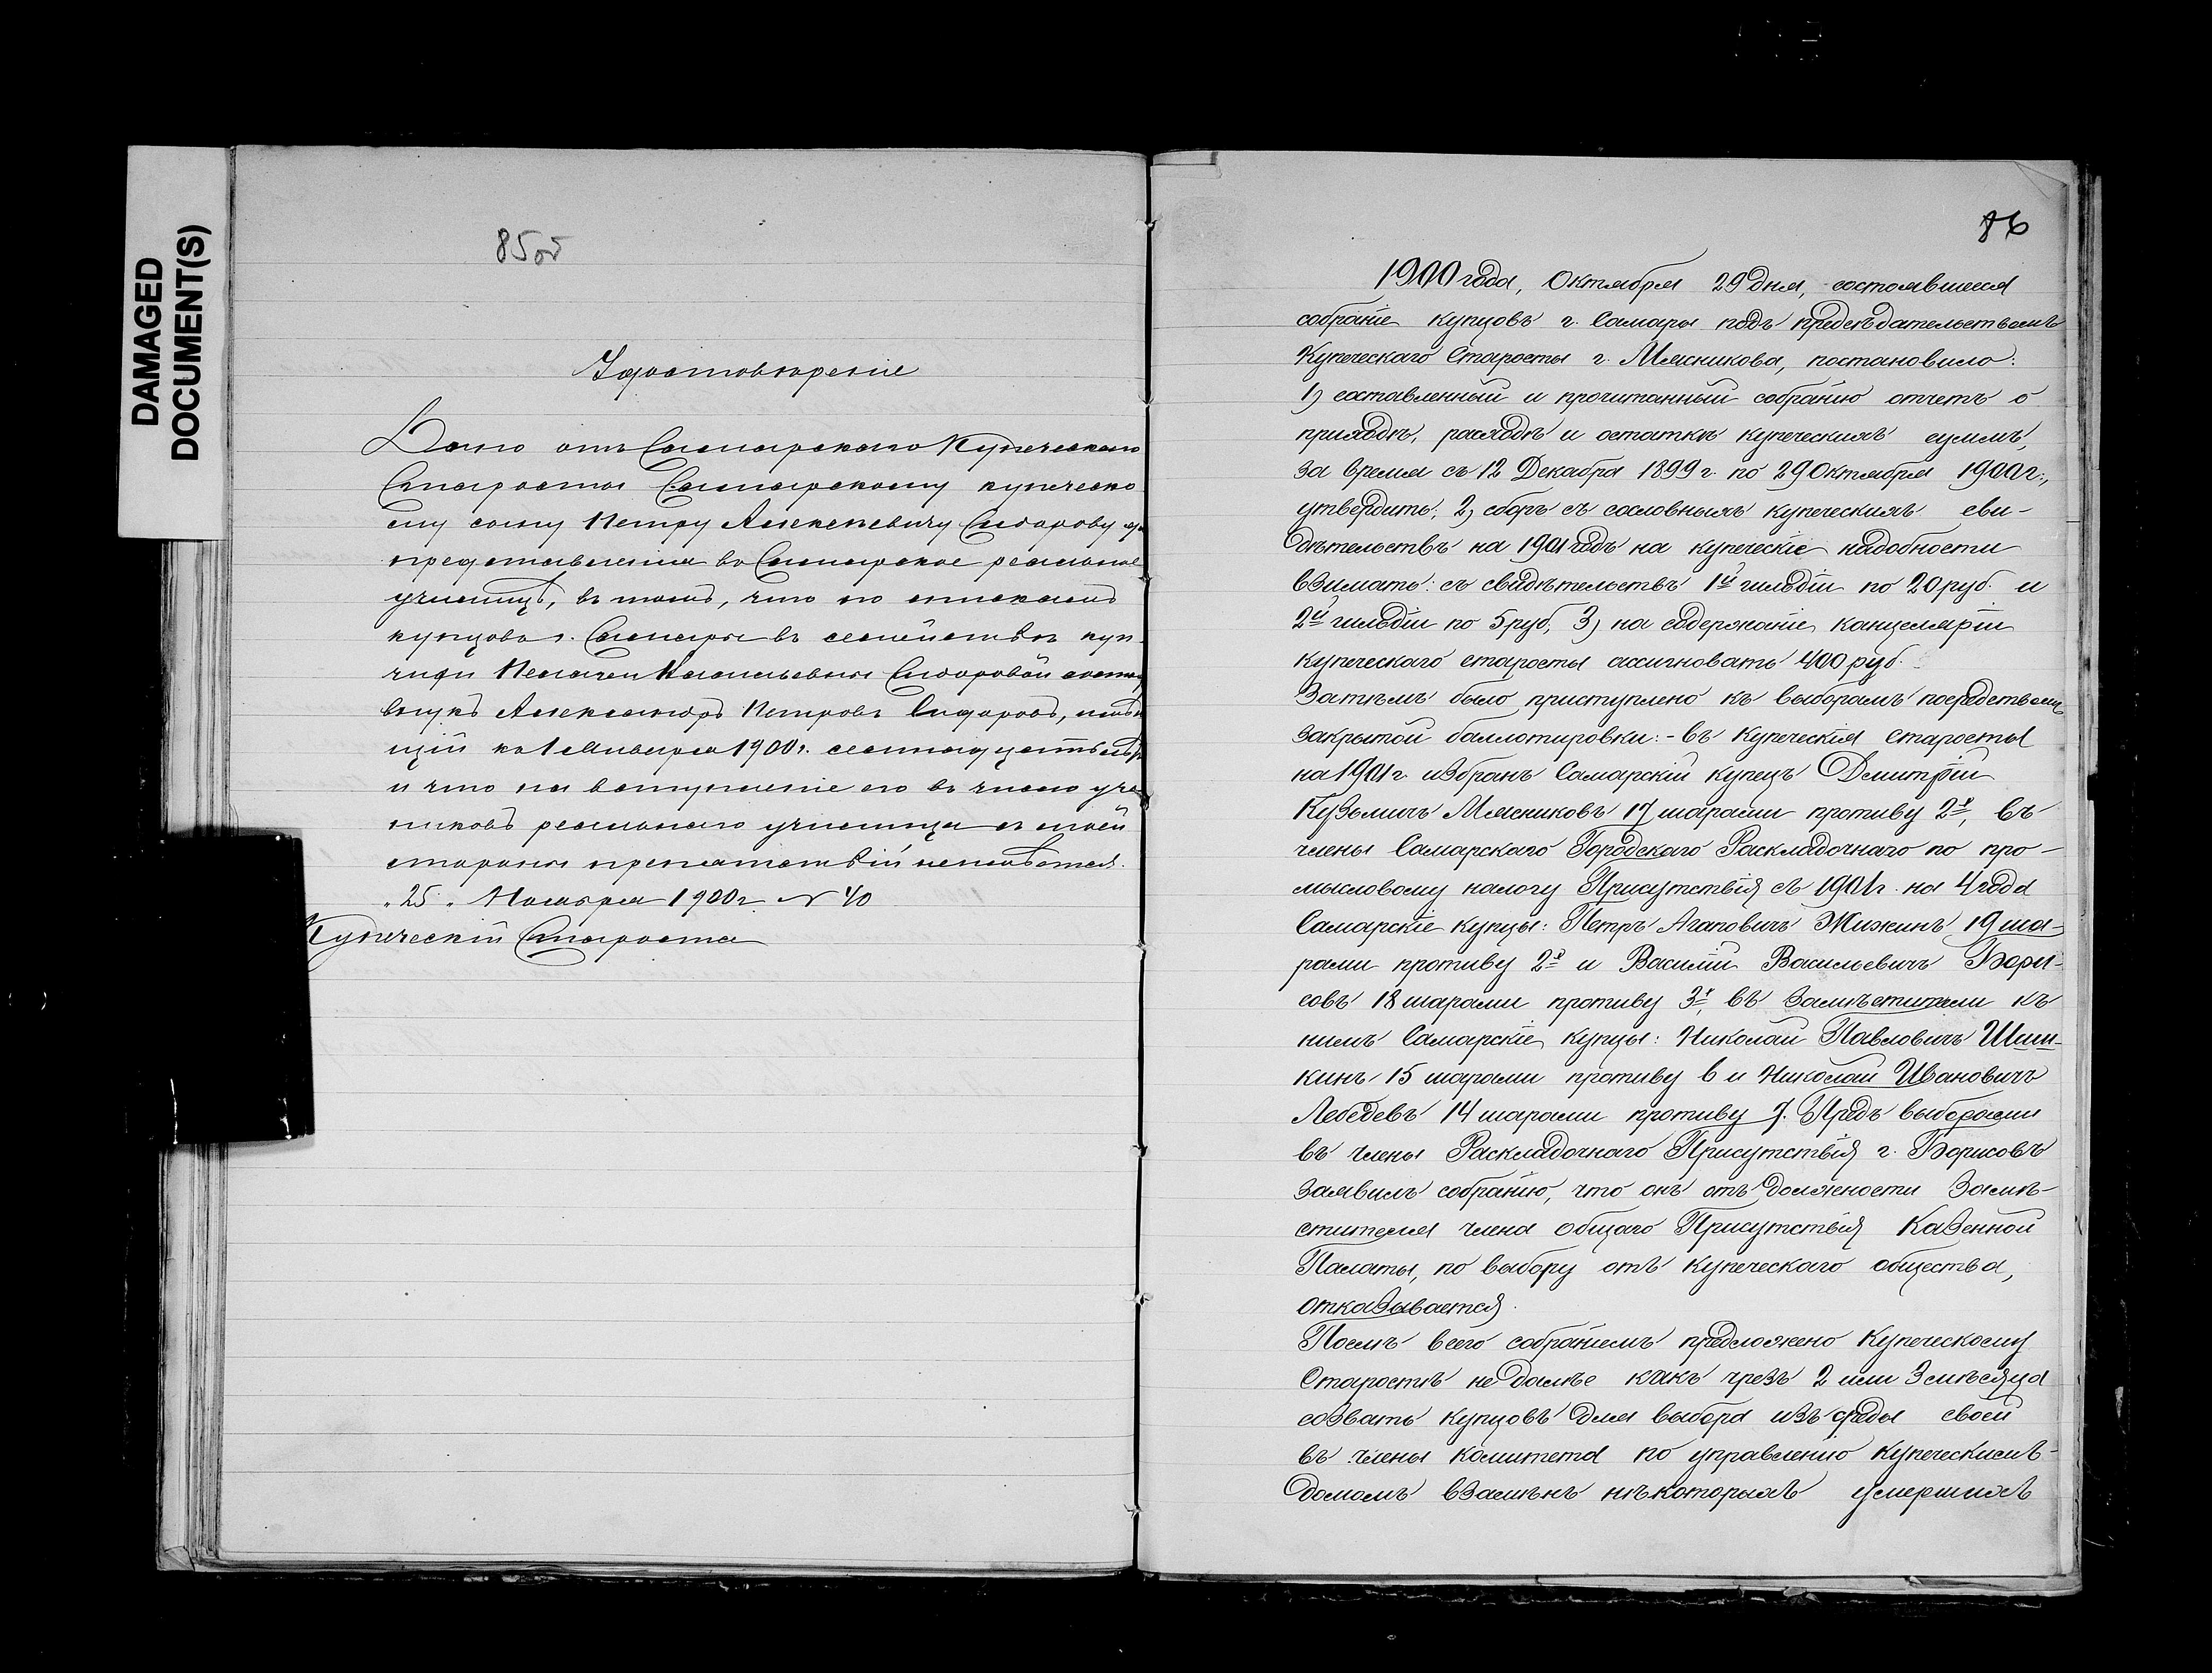 DAMAGED
DOCUMENT(S)
85об
Удостовѣреніе
Дано отъ Самарскаго Купеческаго
Старосты Самарскому купеческо
му сыну Петру Алексѣевичу Сидорову
представленія въ Самарское реальное
училище, въ томъ, что по спискамъ
купцовъ г. Самары въ семействѣ куп-
чихи Пелагеи Васильевны Сидоровой
внукъ Александръ Петровъ Сидоровъ,
щій къ 1 Января 1900 г.
и что на вступленіе его въ число уче
никовъ реальнаго училища съ моей
стороны препятствій неимѣется.
"25" Ноября 1900 г. № 40
Купеческій Староста
86
1900 года, Октября 29 дня, состоявшееся
собраніе купцовъ г. Самары подъ предсѣдательствомъ
Купеческаго Старосты г. Мясникова, постановило:
1) составленный и прочитанный собранію отчетъ о
приходѣ, расходѣ и остаткѣ купеческихъ суммъ,
за время съ 12 Декабря 1899 г. по 29 Октября 1900 г.,
утвердить, 2) сборъ съ сословныхъ купеческихъ сви-
дѣтельствъ на 1901 годъ на купеческіе надобности
взимать: съ свидѣтельствъ 1й гильдіи по 20 руб. и
2й гильдіи по 5 руб, 3) на содержаніе канцеляріи
купеческаго старосты ассигновать 400 руб.
Затѣмъ было приступлено къ выборамъ посредствомъ
закрытой баллотировки:- въ Купеческія Старосты
на 1901 г. избранъ Самарскій купецъ Дмитрій
Кузьмичъ Мясниковъ 17 шарами противу 2х, въ
члены Самарскаго Городскаго Раскладочнаго по про-
мысловому налогу Присутствія съ 1901 г. на 4 года
Самарскіе купцы: Петръ Агаповичъ Жижинъ 19 ша-
рами противу 2х и Василій Васильевичъ Бори-
совъ 18 шарами противу 3х, въ замѣстители къ
нимъ Самарскіе купцы: Николай Павловичъ Шиш-
кинъ 15 шарами противу 6 и Николай Ивановичъ
Лебедевъ 14 шарами противу 7. Предъ выборами
въ члены Раскладочнаго Присутствія г. Борисовъ
заявилъ собранію, что онъ отъ должности замѣ-
стителя члена общаго Присутствія Казенной
Палаты, по выбору отъ купеческаго общества,
отказывается.
Послѣ всего собраніемъ предложено Купеческому
Старостѣ не далѣе какъ чрезъ 2 или 3 мѣсяца
созвать купцовъ для выбора изъ среды своей
въ члены комитета по управленію купеческимъ
домомъ взамѣнъ нѣкоторыхъ умершихъ